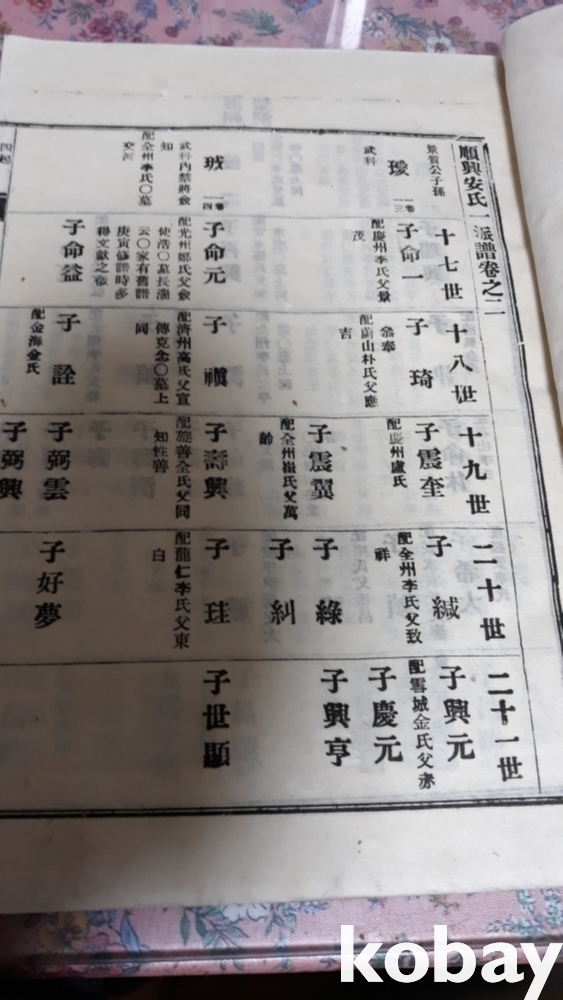 順興安氏一派譜卷之二
景質公子孫
十七世
十八世
十九世
二十世
二十一世
武科
一卷
一三
子命一
配慶州李氏父景
茂
子琦
參奉
配蔚山朴氏父應
吉
子震奎
配慶州盧氏
子緘
配全州李氏父致
祥
子興元
配雪城金氏父赤
子慶元
子震翼
配全州崔氏父萬
齡
子綠
子糾
子興亨
一卷
一四
武科內禁將僉
知
配全州李氏〇墓
交河
子命元
配光州鄭氏父僉
使浩〇墓長湍
云〇家有舊譜
庚寅修譜時多
得文獻之徵
子禛
配濟州高氏父宣
傳克念〇墓上
同
子壽興
配旌善全氏父同
知性善
子珪
配龍仁李氏父東
白
子世顯
子命益
子詮
配金海金氏
子弼雲
子好夢
子弼興
四起
kobay